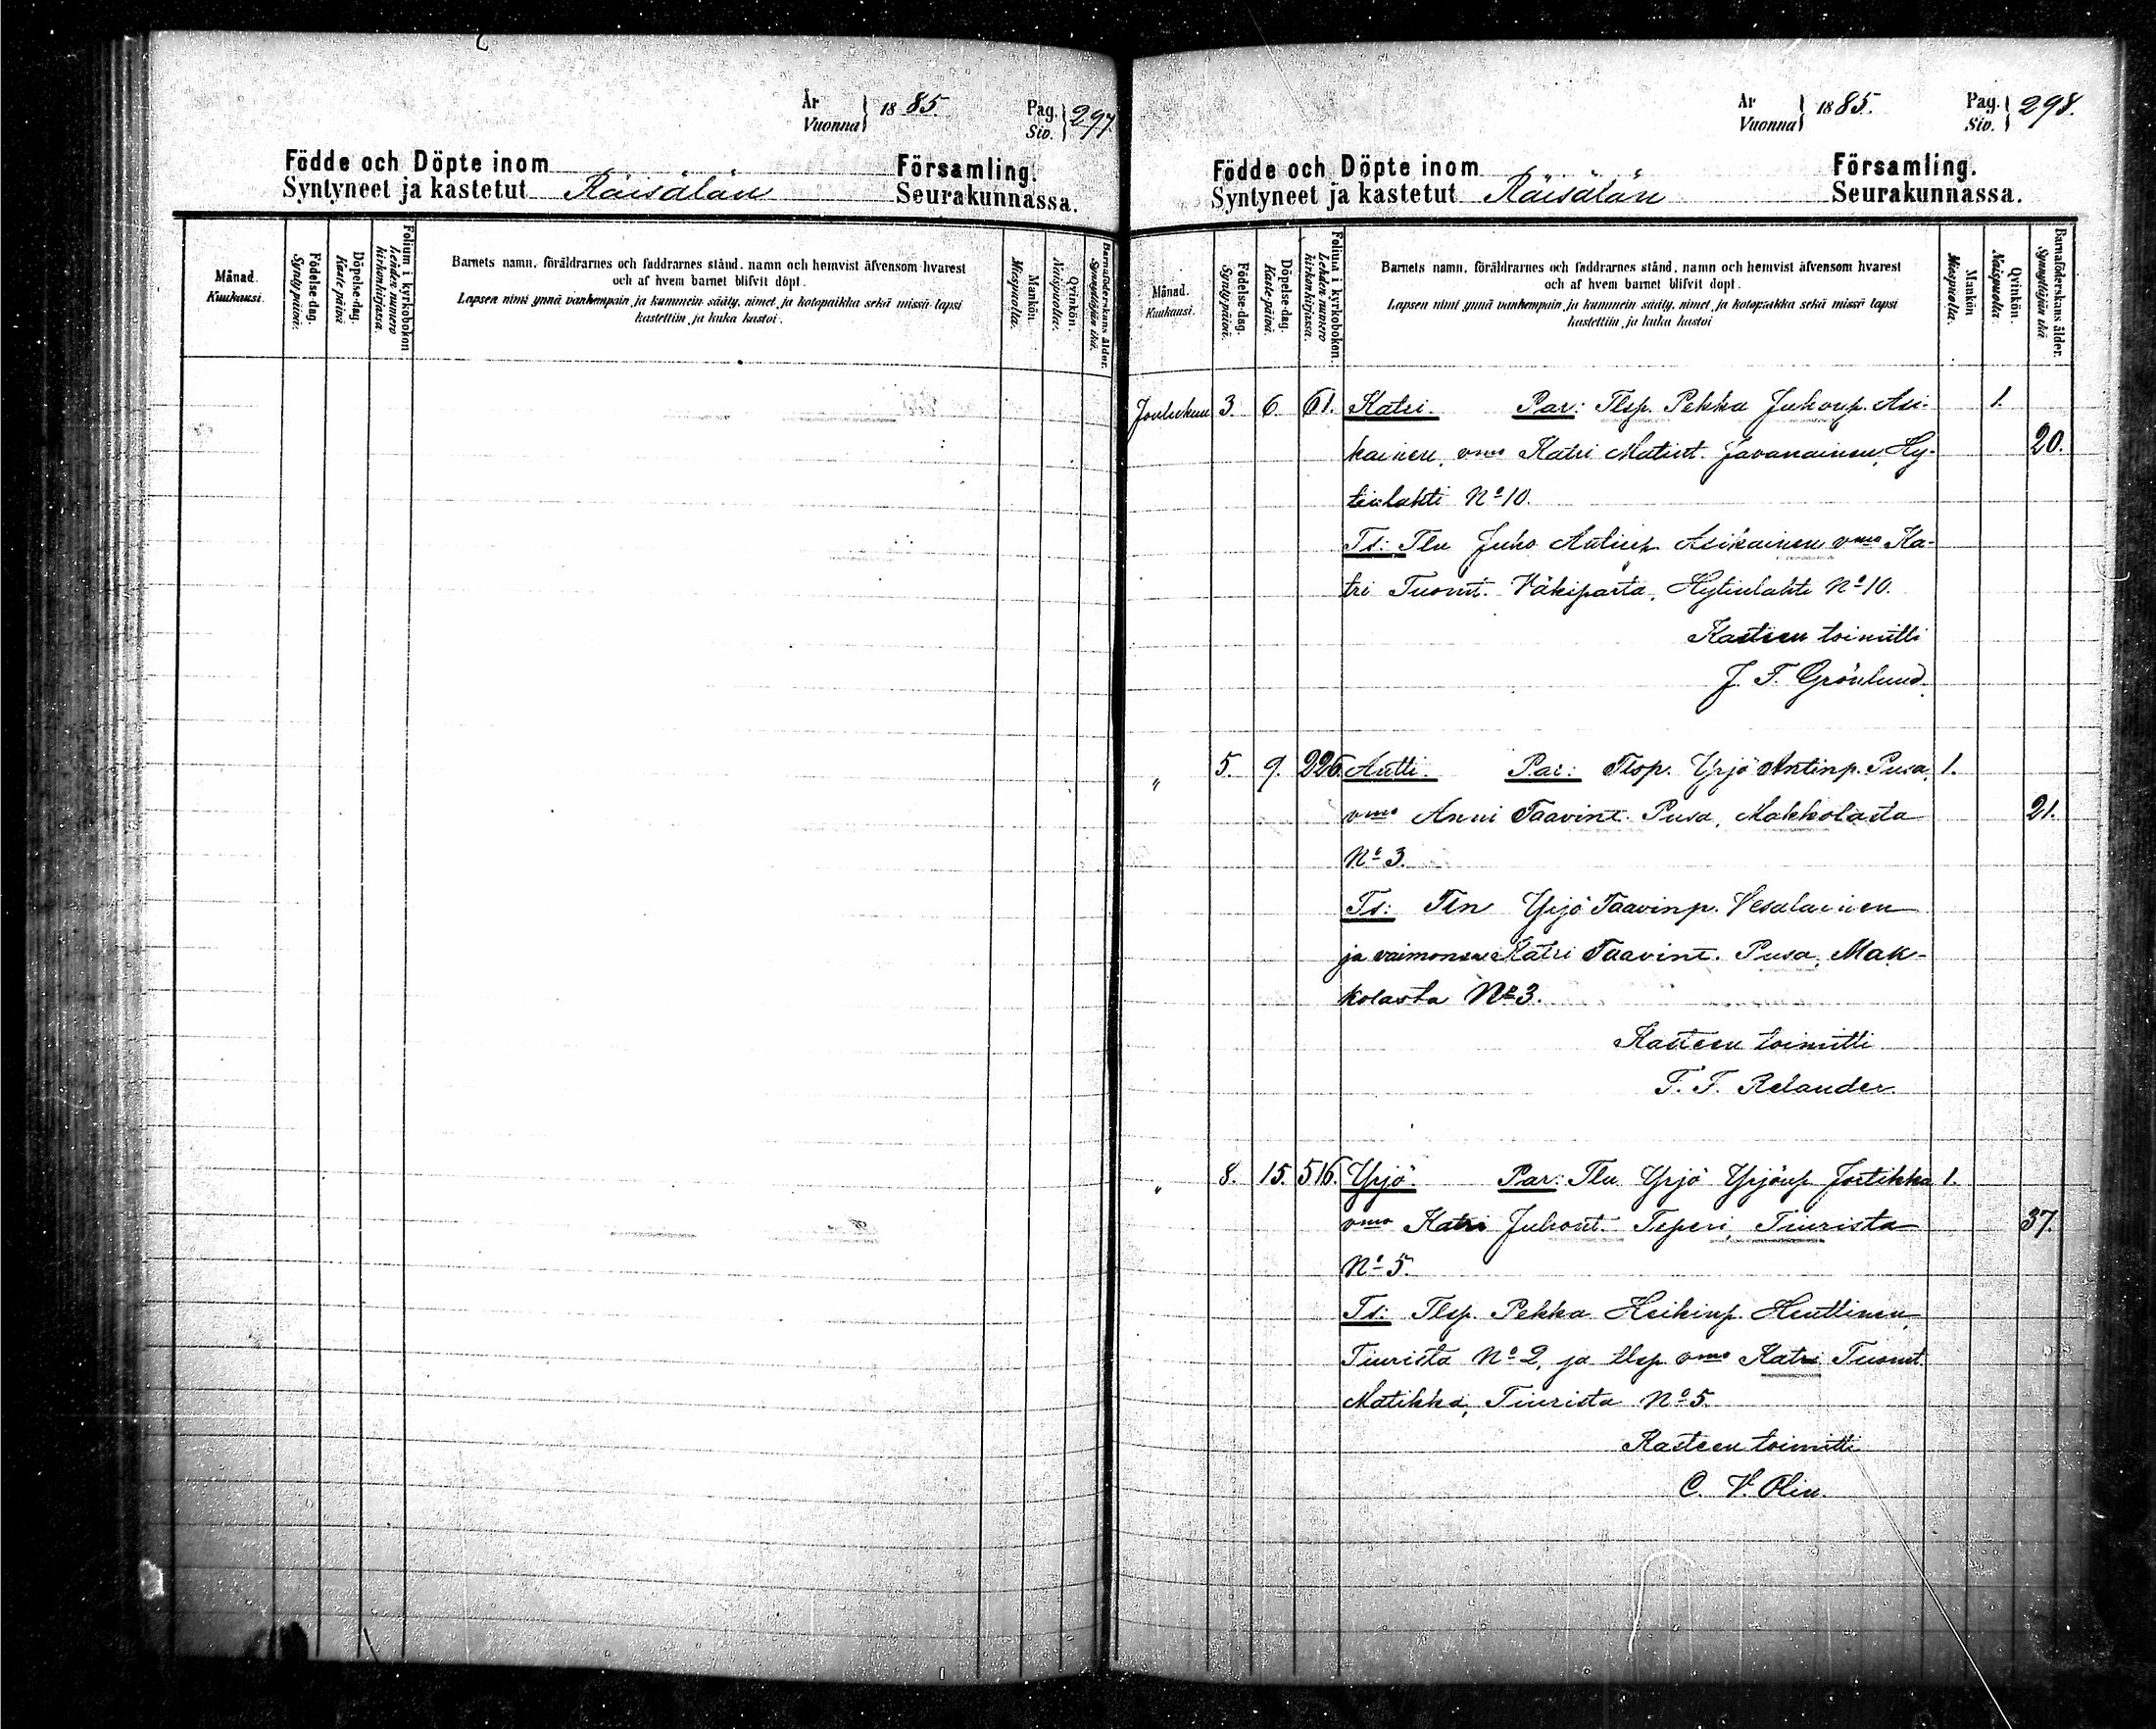 År Vuonna 1885. Pag. Siv. 297.
Födde och Döpte inom Församling.
Syntyneet ja kastetut Räisälän Seurakunnassa.
Månad. Kuukausi.
Födelse-dag. Synty-päivä.
Döpelse-dag. Kaste-päivä
Folium i kyrkoboken. Lehden numero kirkonkirjassa.
Barnets namn, föräldrarnes och faddrarnes stånd, namn och hemvist äfvensom hvarest
och af hvem barnet blifvit döpt.
Lapsen nimi ynnä vanhempain ja kummein sääty, nimet ja kotopaikka sekä missä lapsi
kastettiin ja kuka kastoi.
Mankön. Miespuolia.
Qvinkön. Naispuolia.
Barnaföderskans ålder. Synnyttäjän ikä.
År Vuonna 1885. Pag. Siv. 298.
Födde och Döpte inom Församling.
Syntyneet ja kastetut Räisälän Seurakunnassa.
Månad. Kuukausi.
Födelse-dag. Synty-päivä.
Döpelse-dag. Kaste-päivä.
Folium i kyrkoboken. Lehden numero kirkonkirjassa.
Barnets namn, föräldrarnes och faddrarnes stånd, namn och hemvist äfvensom hvarest
och af hvem barnet blifvit döpt.
Lapsen nimi ynnä vanhempain ja kummein sääty, nimet ja kotopaikka sekä missä lapsi
kastettiin ja kuka kastoi
Mankön Miespuolia.
Qvinkön. Naispuolia.
Barnaföderskans ålder. Synnyttäjän ikä
Joulukuu 3. 6. 61. Katri. Par: Tlsp. Pekka Juhonp. Asi- 1.
kainen, vmo Katri Matint. Javanainen, Hy- 20.
tinlahti No 10.
Td: Tln Juho Antinp. Asikainen vmo Ka-
tri Tuomt. Väkiparta, Hytinlahti No 10.
Kasteen toimitti
J. F. Grönlund.
" 5. 9. 226. Antti. Par: Tlsp. Yrjö Antinp. Pusa, 1.
vmo Anni Taavint. Pusa, Makkolasta 21.
No 3.
Td: Tln Yrjö Taavinp. Vesalainen
ja vaimonsa Katri Taavint. Pusa, Mak-
kolasta No 3.
Kasteen toimitti
T. F. Relander.
" 8. 15. 516. Yrjö. Par: Tln Yrjö Yrjönp. Jortikka 1.
vmo Katri Juhont. Teperi, Tiurista 37.
No 5.
Td: Tlsp. Pekka Heikinp. Henttinen,
Tiurista No 2, ja tlsp. vmo Katri Tuomt.
Matikka, Tiurista No 5.
Kasteen toimitti
C. V. Olin.